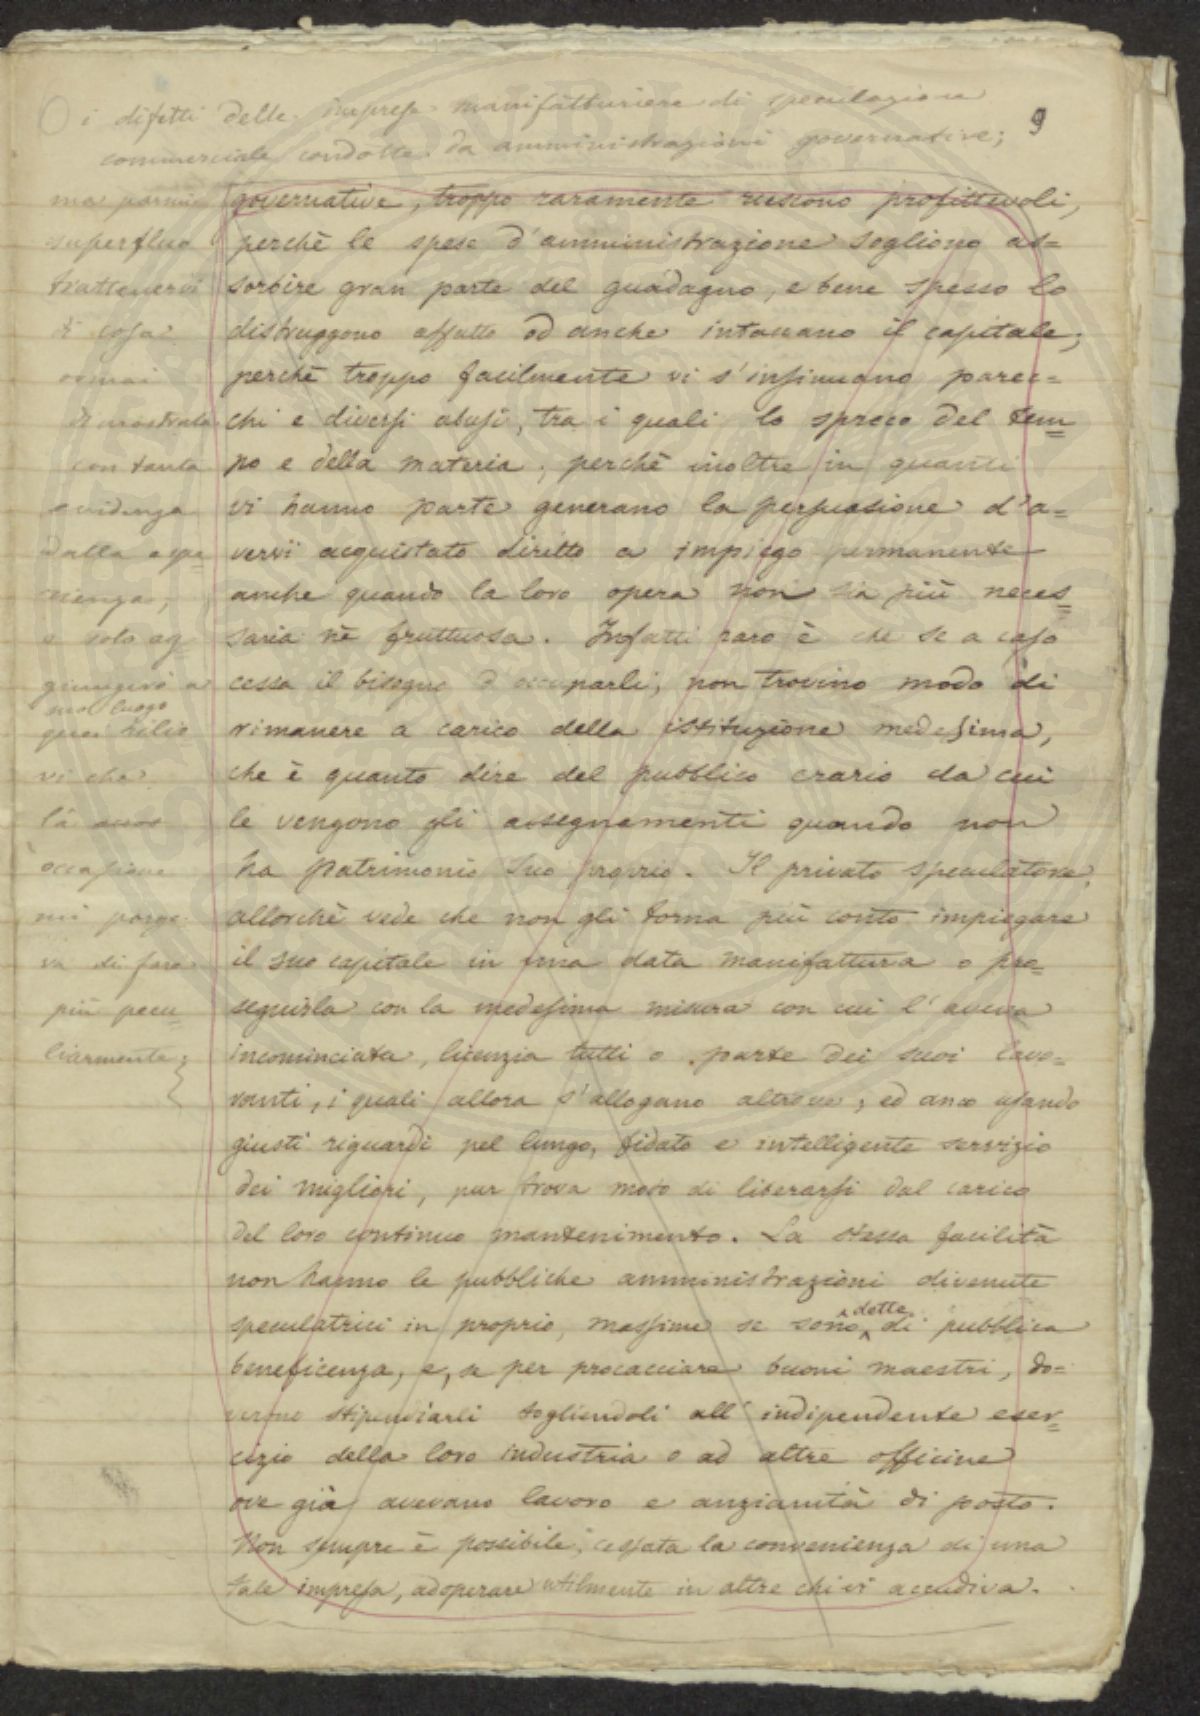 i difetti delle imprese manifatturiere di speculazione
9
commerciale condotte da amministrazioni governative;
ma parmi
superfluo
trattenervi
di cosa
ormai
dimostrata
con tanta
evidenza
dalla espe-
rienza;
e solo ag-
giungerò a
suo luogo
quei rilie
vi che
l'occasione
mi porge-
va di fare
più pecu-
liarmente;
governative, troppo raramente riescono profittevoli,
perchè le spese d'amministrazione sogliono as=
sorbire gran parte del guadagno, e bene spesso lo
distruggono affatto od anche intaccano il capitale;
perchè troppo facilmente vi s'insinuano parec=
chi e diversi abusi, tra i quali lo spreco del tem=
po e della materia; perchè inoltre in quanti
vi hanno parte generano la persuasione d'a=
vervi acquistato diritto a impiego permanente
anche quando la loro opera non sia più neces=
saria nè fruttuosa. Infatti raro è che se a caso
cessa il bisogno d'occuparli, non trovino modo di
rimanere a carico della istituzione medesima,
che è quanto dire del pubblico erario da cui
le vengono gli assegnamenti quando non
ha patrimonio suo proprio. Il privato speculatore,
allorchè vede che non gli torna più conto impiegare
il suo capitale in una data manifattura o pro=
seguirla con la medesima misura con cui l'aveva
incominciata, licenzia tutti o parte dei suoi lavo=
ranti, i quali allora s'allogano altrove; ed anco usando
giusti riguardi pel lungo, fidato e intelligente servizio
dei migliori, pur trova modo di liberarsi dal carico
del loro continuo mantenimento. La stessa facilità
non hanno le pubbliche amministrazioni divenute
speculatrici in proprio, massime se sono dette di pubblica
beneficenza, e, se per procacciare buoni maestri, do=
verono stipendiarli togliendoli all'indipendente eser=
cizio della loro industria o ad altre officine
ove già avevano lavoro e anzianità di posto.
Non sempre è possibile, cessata la convenienza di una
tale impresa, adoperare utilmente in altre chi vi accudiva.